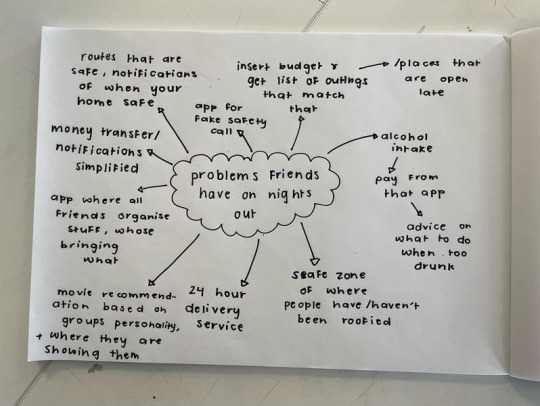 routes that are
safe, notifications
of when your
home safe
app for
fake safety
call
insert budget &
get list of outings
that match
that
/places that
are open
late
money transfer/
notifications
simplified
problems friends
have on nights
out
alcohol
intake
pay from
that app
advice on
what to do
when too
drunk
app where all
friends organise
stuff, whose
bringing
what
movie recommend-
ation based on
groups personality,
+ where they are
showing them
24 hour
delivery
service
safe zone
of where
people have/haven't
been roofied